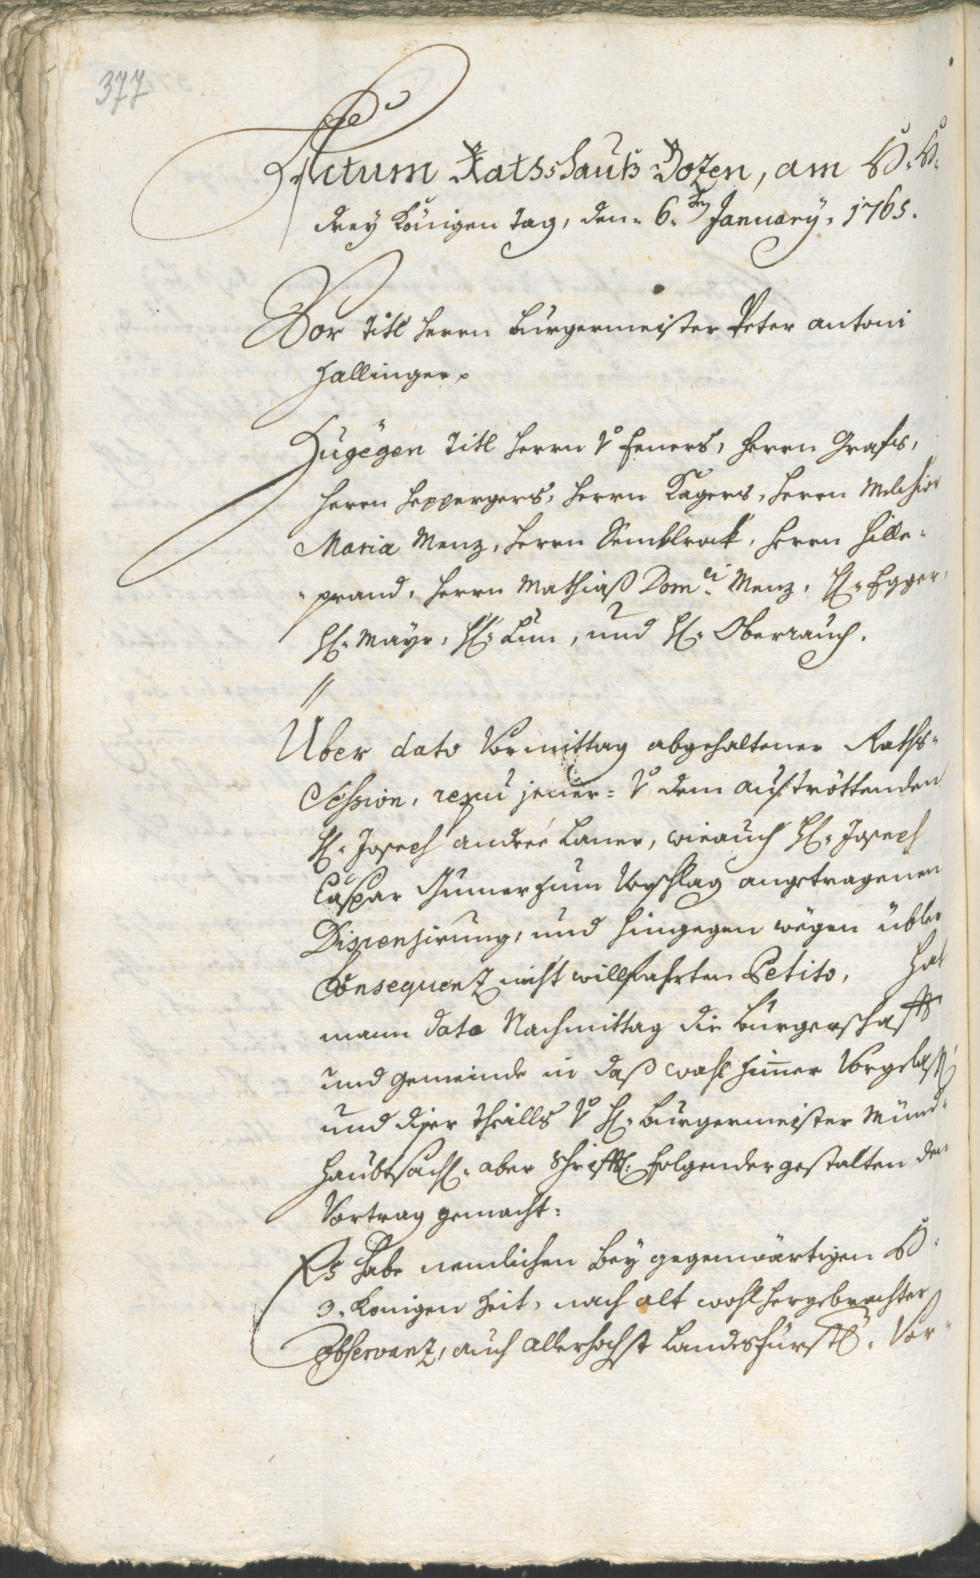 377
Actum Ratsshauß Bozen, am H: H:
drey Königen tag, den 6.ten January. 1765.
Vor titl Herrn Burgermeister Peter Antoni
Hallinger.
Zugegen titl Herrn v Feners, Herrn Grafs,
Herrn Heppergers, Herrn Kagers, Herrn Melchior
Maria Menz, Herrn Semblrock, Herrn Hille-
prand, Herrn Mathiaß Dom:ci Menz, H: Egger,
H: Mayr, H: Lun, und H: Oberrauch.
//
Über dato Vormittag abgehaltener Raths-
Session, jener= v dem auströttenden
H: Joseph André Laner, wie auch H: Joseph
Caspar Gumer zum Vorschlag angetragenen
Dispensirung, und hingegen wegen übler
Consequenz nicht willfahrten Petito, hat
mann dato Nachmittag die Burgerschafft
und Gemeinde in daß wahl Zimer Vorgelaßt
und diser theills v H: Burgermeister Münd-
Haubtsachl: aber Schrifftl: folgender gestalten den
Vortrag gemacht:
Es habe nemlichen bey gegenwärtigen H:
3. Königen Zeit, nach alt wohl hergebrachter
observanz, auch allerhöchst Landesfürstl: Vor-